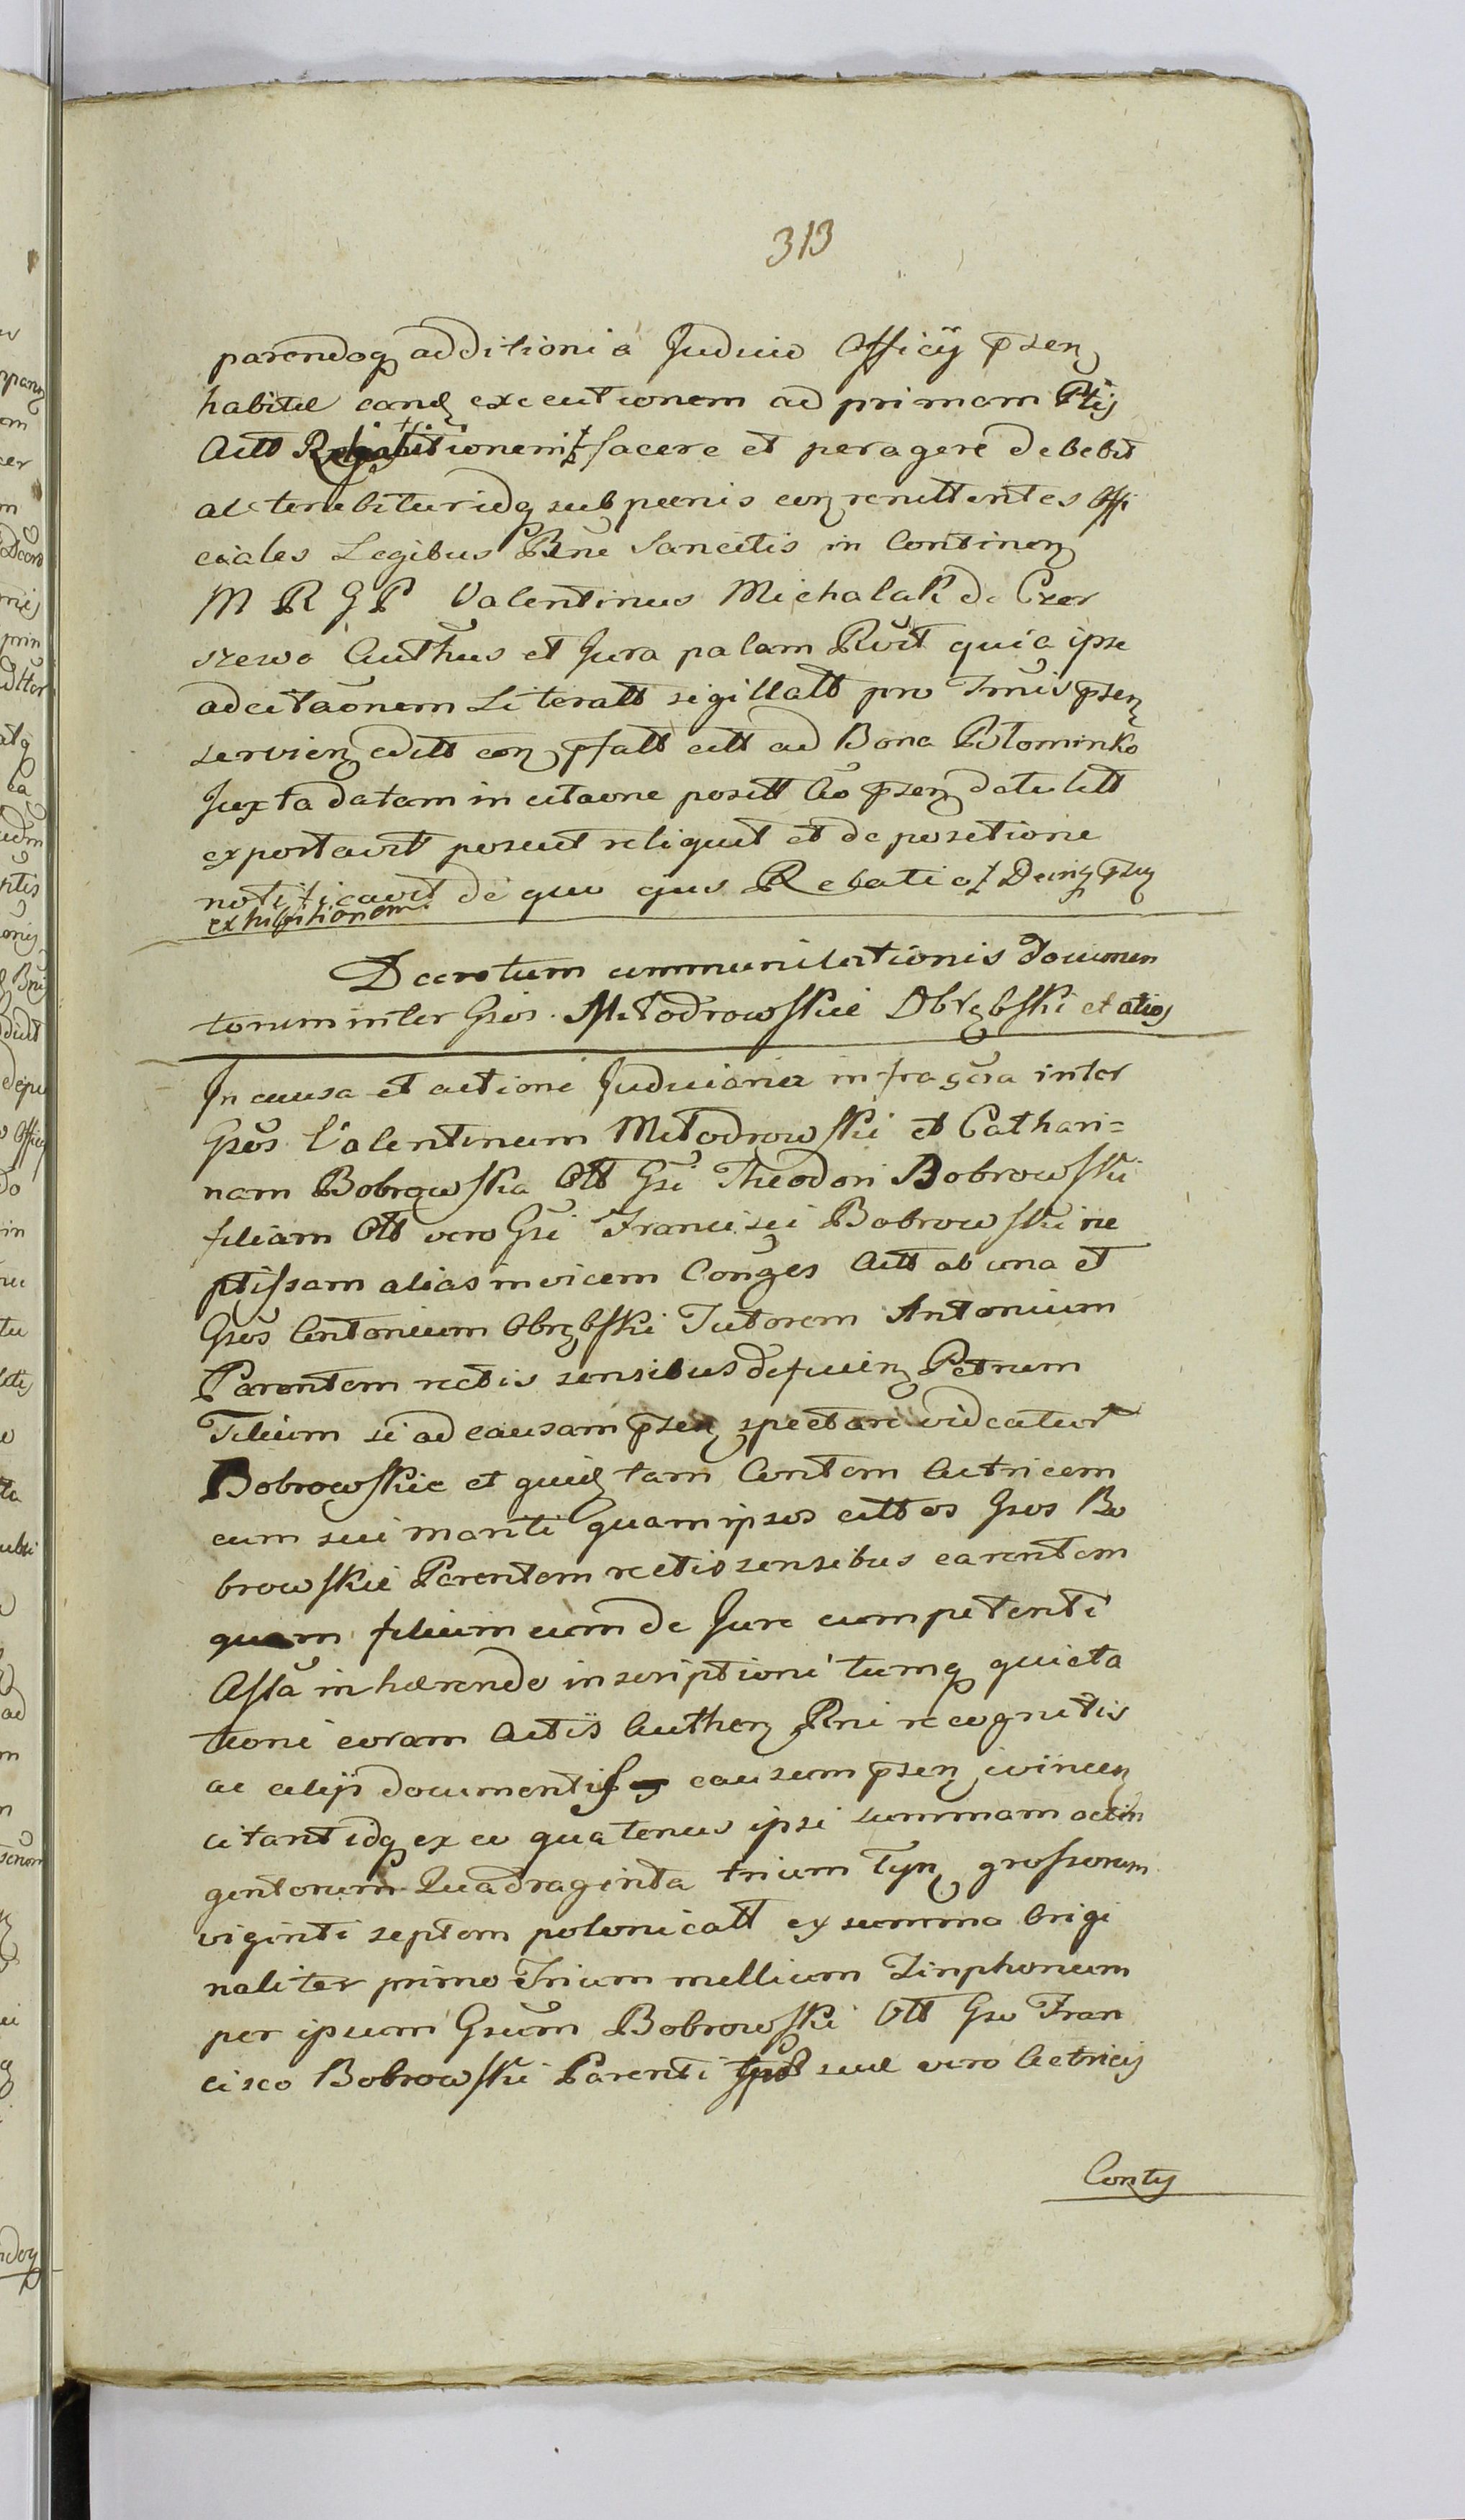 313
parendoq additioni a Judicio Officÿ pñsenꝫ
habitæ eandꝫ executionem ad primam Ptis
Actt ‡ facere et peragere debebit
ac tenebitur idq sub pœnis conꝫ renittentes Offi
ciales Legibus Rñi Sancitis in Continenꝫ
M R G P Valentinus Michalak de Czer
szewo Authus et Jura palam Rvit quia ipse
ad citaõnem Literatt sigillatt pro Tmis pñsenꝫ
servienꝫ editt conꝫ pfatt citt ad Bona Płominko
Juxta datam in citaone positt Ao pñsenꝫ date litt
exportavit posuit reliquit et de positione
notificavit de quo ejus Relatio ‡ Deinꝫ pñsenꝫ
exhibitionem
Decretum communicationis documen
torum inter Gsos Młodrowskie Obrębski et alios
In causa et actione Judiciaria infrascra inter
Gsos Valentinum Młodrowski et Cathari=
nam Bobrowska Ott Gsi Theodori Bobrowski
filiam Ott vero Gsi Francisci Bobrowski ne
ptissam alias invicem Conges Actt ab una et
Gsos Antonium Obrębski Tutorem Antonium
Parentem rectis sensibus deficienꝫ Petrum
Filium si ad causam pñsenꝫ spectare videatur
Bobrowskie et quidꝫ tam Contem Actricem
cum sui mariti quam ipsos citt os Gsos Bo
browskie Parentem rectis sensibus carentem
quam filium eum de Jure competenti
Assa inhærendo inscriptioni tumq quieta
tioni coram Actis Authenꝫ Rni recognitis
ac alijs documentis causam pñsenꝫ evincenꝫ
citant idq ex eo quatenus ipsi summam octin
gentorum Quadraginta trium Tynꝫ grossorum
viginti septem polonicatt ex summa Origi
naliter primo Trium millium Tinphonum
per ipsum Gsum Bobrowski Ott Gso Fran
cisco Bobrowski Parenti suæ vero Actricis
Contis